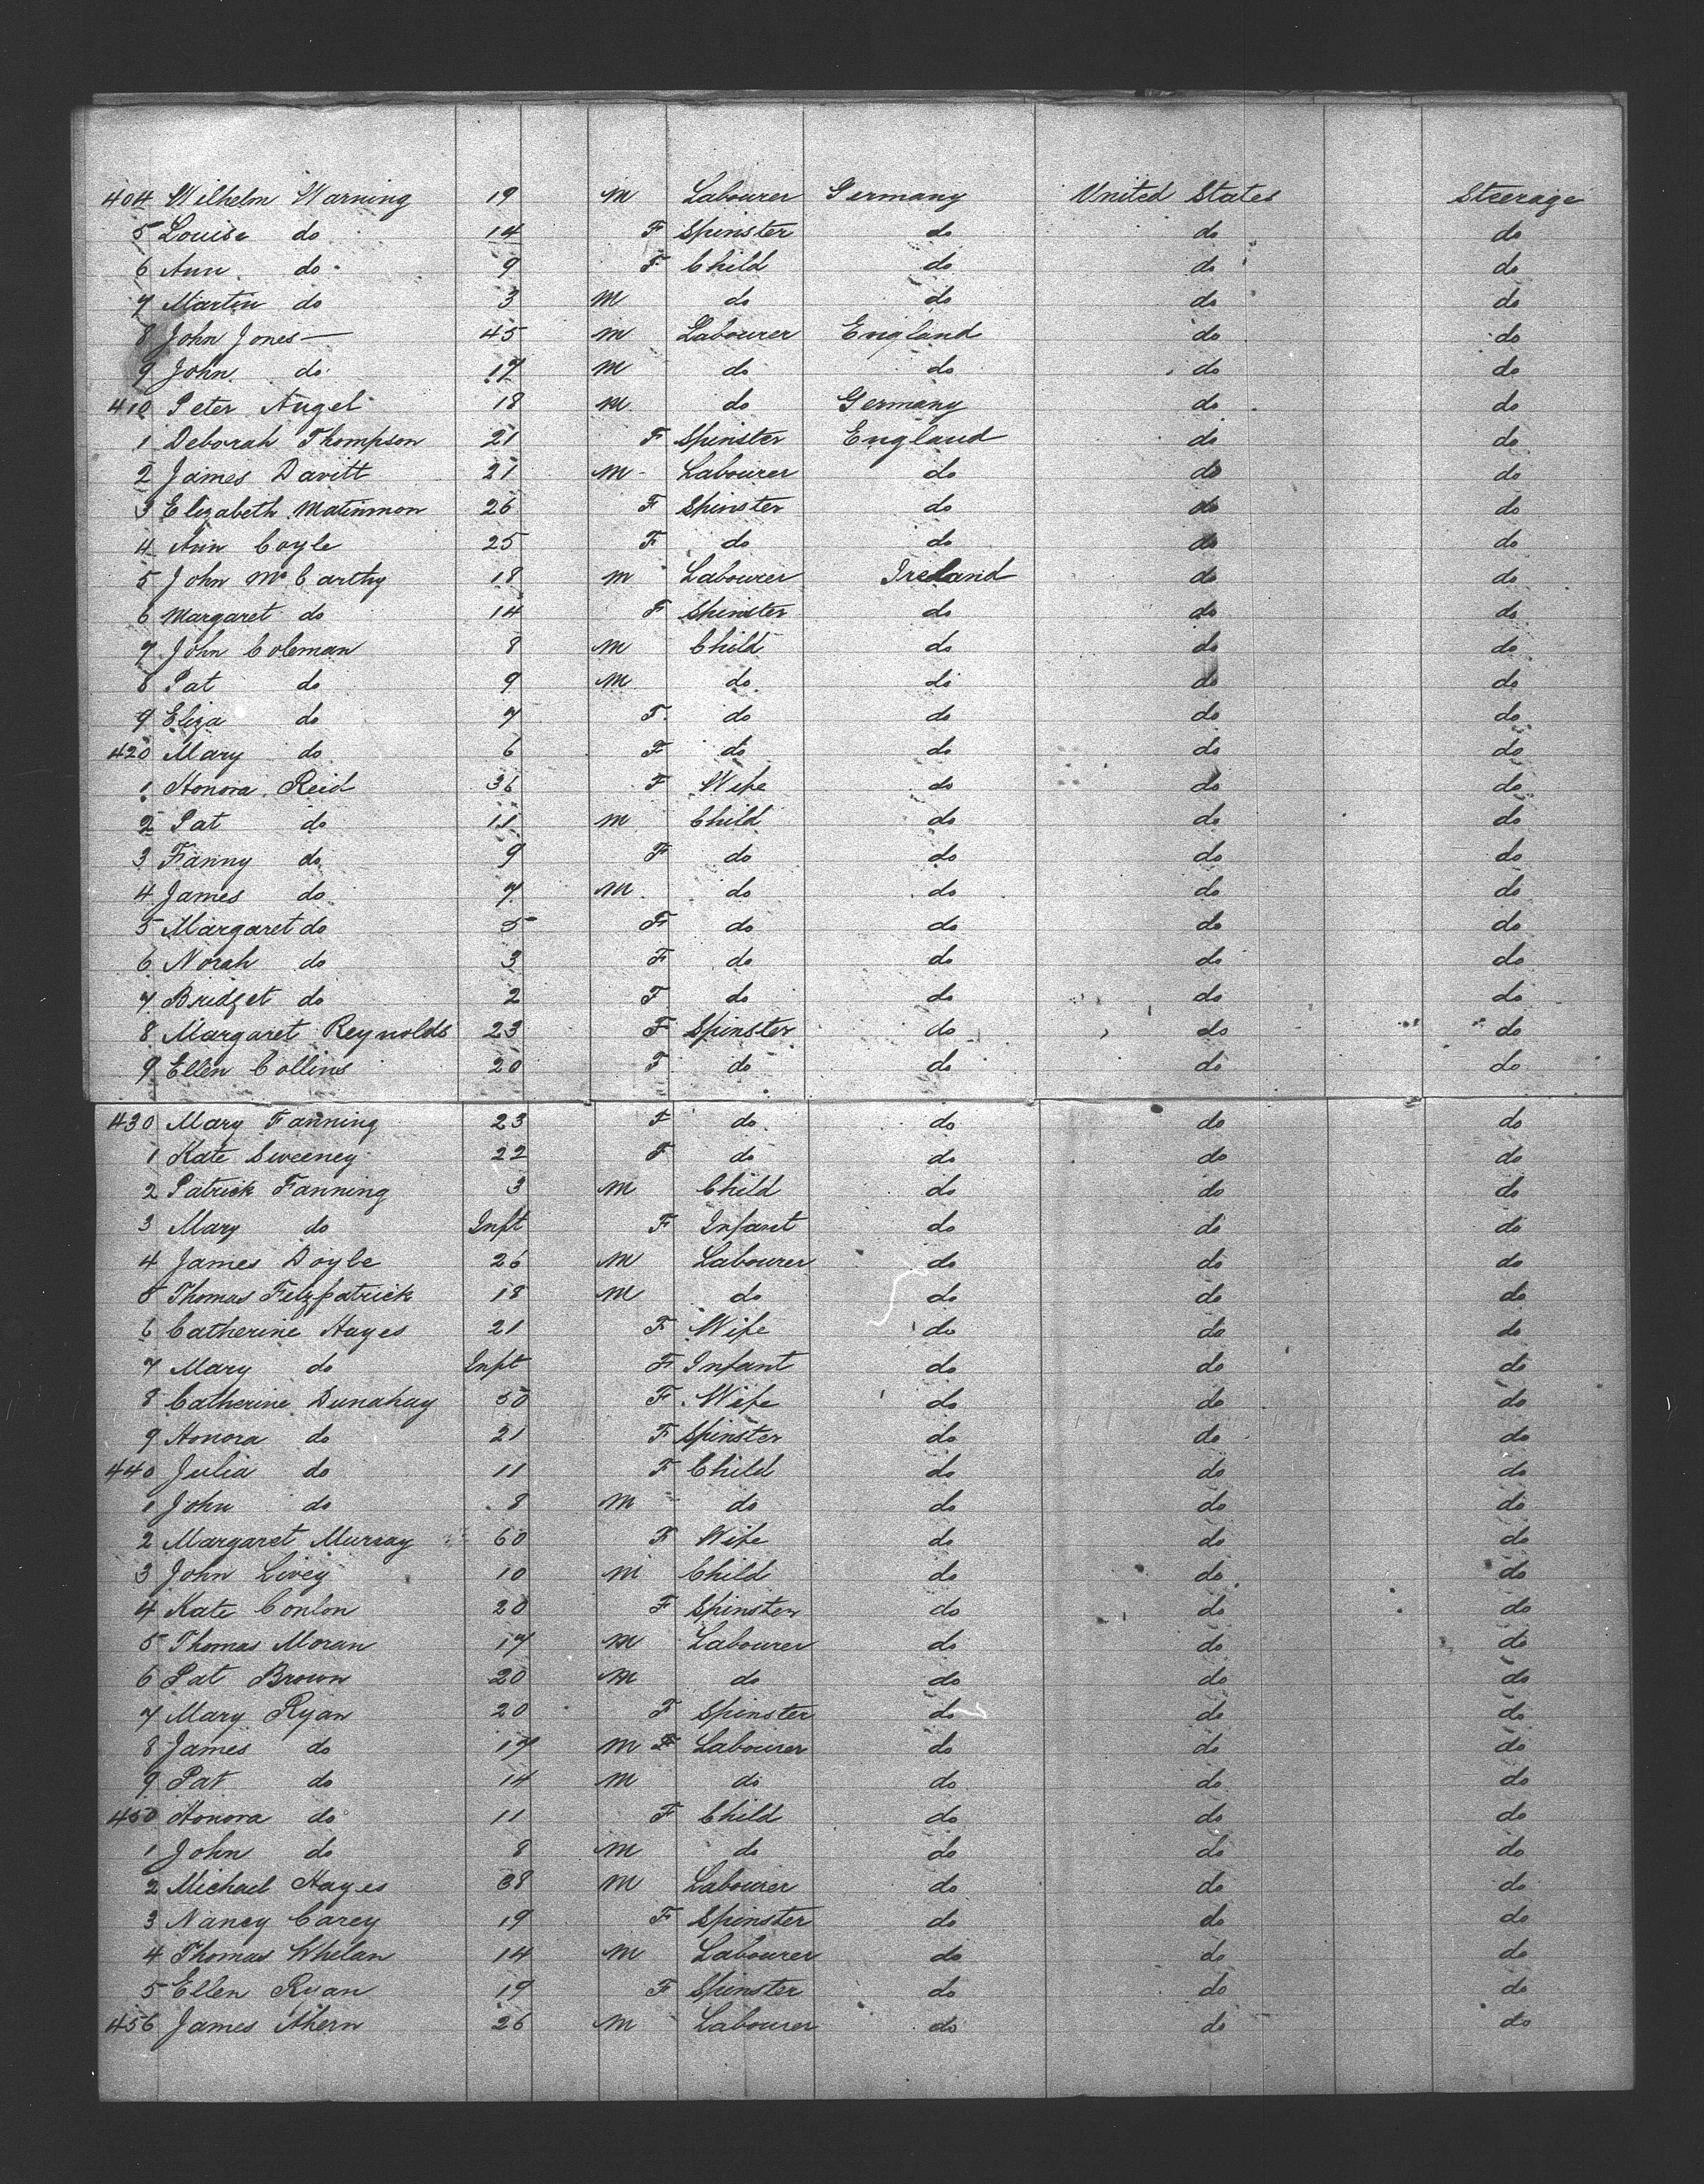 404 Wilhelm Warning 19 M Labourer Germany United States Steerage
5 Louise do 14 F Spinster do do do
6 Ann do 9 F Child do do do
7 Martin do 3 M do do do do
8 John Jones — 45 M Labourer England do do
9 John do 17 M do do do do
410 Peter Angel 18 M do Germany do do
1 Deborah Thompson 21 F Spinster England do do
2 James Davitt 21 M Labourer do do do
3 Elizabeth Matinmon 26 F Spinster do do do
4 Ann Coyle 25 F do do do do
5 John McCarthy 18 M Labourer Ireland do do
6 Margaret do 14 F Spinster do do do
7 John Coleman 8 M Child do do do
8 Pat do 9 M do do do do
9 Eliza do 7 F do do do do
420 Mary do 6 F do do do do
1 Honora Reid 36 F Wife do do do
2 Pat do 11 M Child do do do
3 Fanny do 9 F do do do do
4 James do 7 M do do do do
5 Margaret do 5 F do do do do
6 Norah do 3 F do do do do
7 Bridget do 2 F do do do do
8 Margaret Reynolds 23 F Spinster do do do
9 Ellen Collins 20 F do do do do
430 Mary Fanning 23 F do do do do
1 Kate Sweeney 22 F do do do do
2 Patrick Fanning 3 M Child do do do
3 Mary do Inft F Infant do do do
4 James Doyle 26 M Labourer do do do
5 Thomas Fitzpatrick 18 M do do do do
6 Catherine Hayes 21 F Wife do do do
7 Mary do Inft F Infant do do do
8 Catherine Dunahay 50 F Wife do do do
9 Honora do 21 F Spinster do do do
440 Julia do 11 F Child do do do
1 John do 8 M do do do do
2 Margaret Murray 60 F Wife do do do
3 John Livey 10 M Child do do do
4 Kate Conlon 20 F Spinster do do do
5 Thomas Moran 17 M Labourer do do do
6 Pat Brown 20 M do do do do
7 Mary Ryan 20 F Spinster do do do
8 James do 17 M F Labourer do do do
9 Pat do 14 M do do do do
450 Honora do 11 F Child do do do
1 John do 8 M do do do do
2 Michael Hayes 38 M Labourer do do do
3 Nancy Carey 19 F Spinster do do do
4 Thomas Whelan 14 M Labourer do do do
5 Ellen Ryan 19 F Spinster do do do
456 James Ahern 26 M Labourer do do do